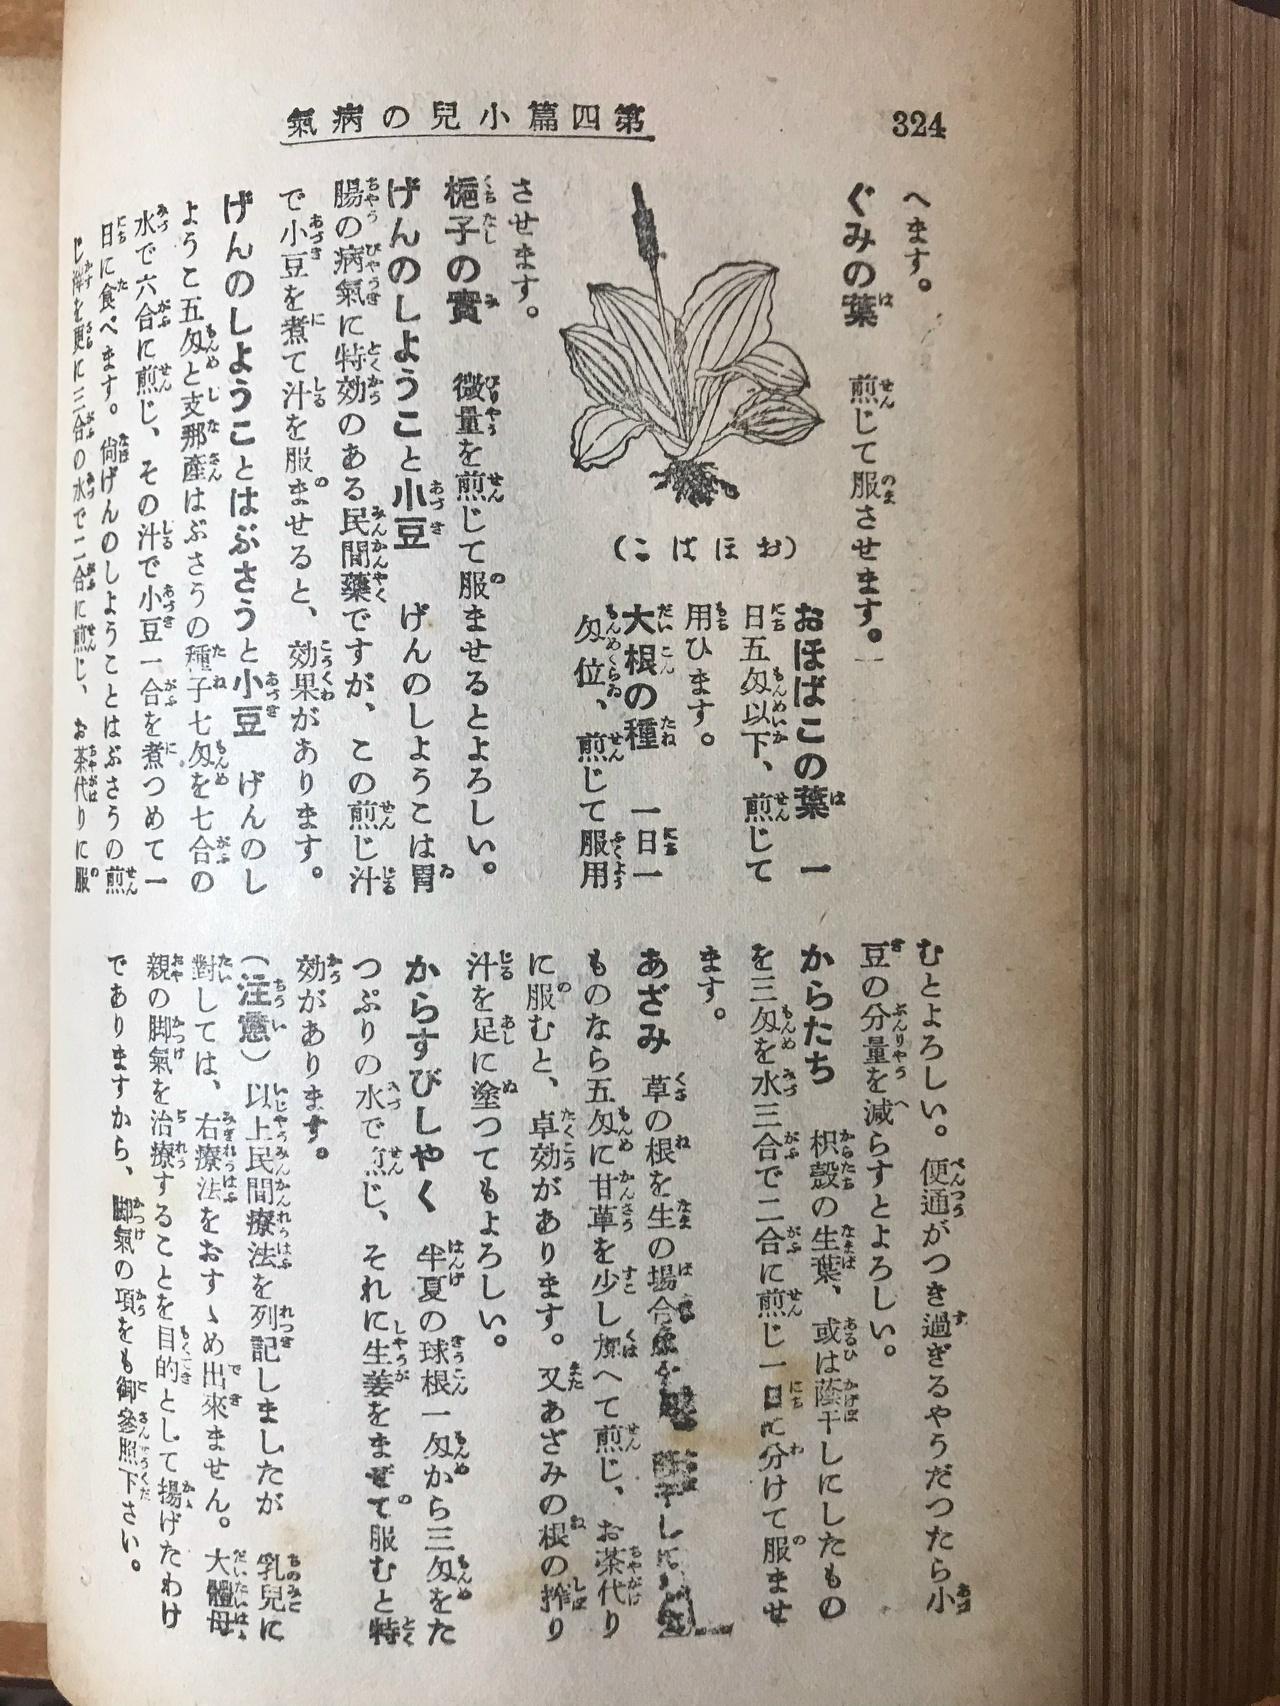 324
第四篇小兒の病氣
へます。
ぐみの葉　煎じて服させます。
おほばこの葉　一
日五匁以下、煎じて
用ひます。
大根の種　一日一
匁位、煎じて服用
(おほばこ)
させます。
梔子の實　微量を煎じて服ませるとよろしい。
げんのしようこと小豆　げんのしようこは胃
腸の病氣に特効のある民間藥ですが、この煎じ汁
で小豆を煮て汁を服ませると、効果があります。
げんのしようことはぶさうと小豆　げんのし
ようこ五匁と支那產はぶさうの種子七匁を七合の
水で六合に煎じ、その汁で小豆一合を煮つめて一
日に食べます。尙げんのしようことはぶさうの煎
じ滓を更に三合の水で二合に煎じ、お茶代りに服
むとよろしい。便通がつき過ぎるやうだつたら小
豆の分量を減らすとよろしい。
からたち　枳殼の生葉、或は蔭干しにしたもの
を三匁を水三合で二合に煎じ一日に分けて服ませ
ます。
あざみ　草の根を生の場合
ものなら五匁に甘草を少し加へて煎じ、お茶代り
に服むと、卓効があります。又あざみの根の搾り
汁を足に塗つてもよろしい。
からすびしやく　半夏の球根一匁から三匁をた
つぷりの水で煎じ、それに生姜をまぜて服むと特
効があります。
(注意)　以上民間療法を列記しましたが　乳兒に
對しては、右療法をおすゝめ出來ません。大體母
親の脚氣を治療することを目的として揚げたわけ
でありますから、脚氣の項をも御參照下さい。